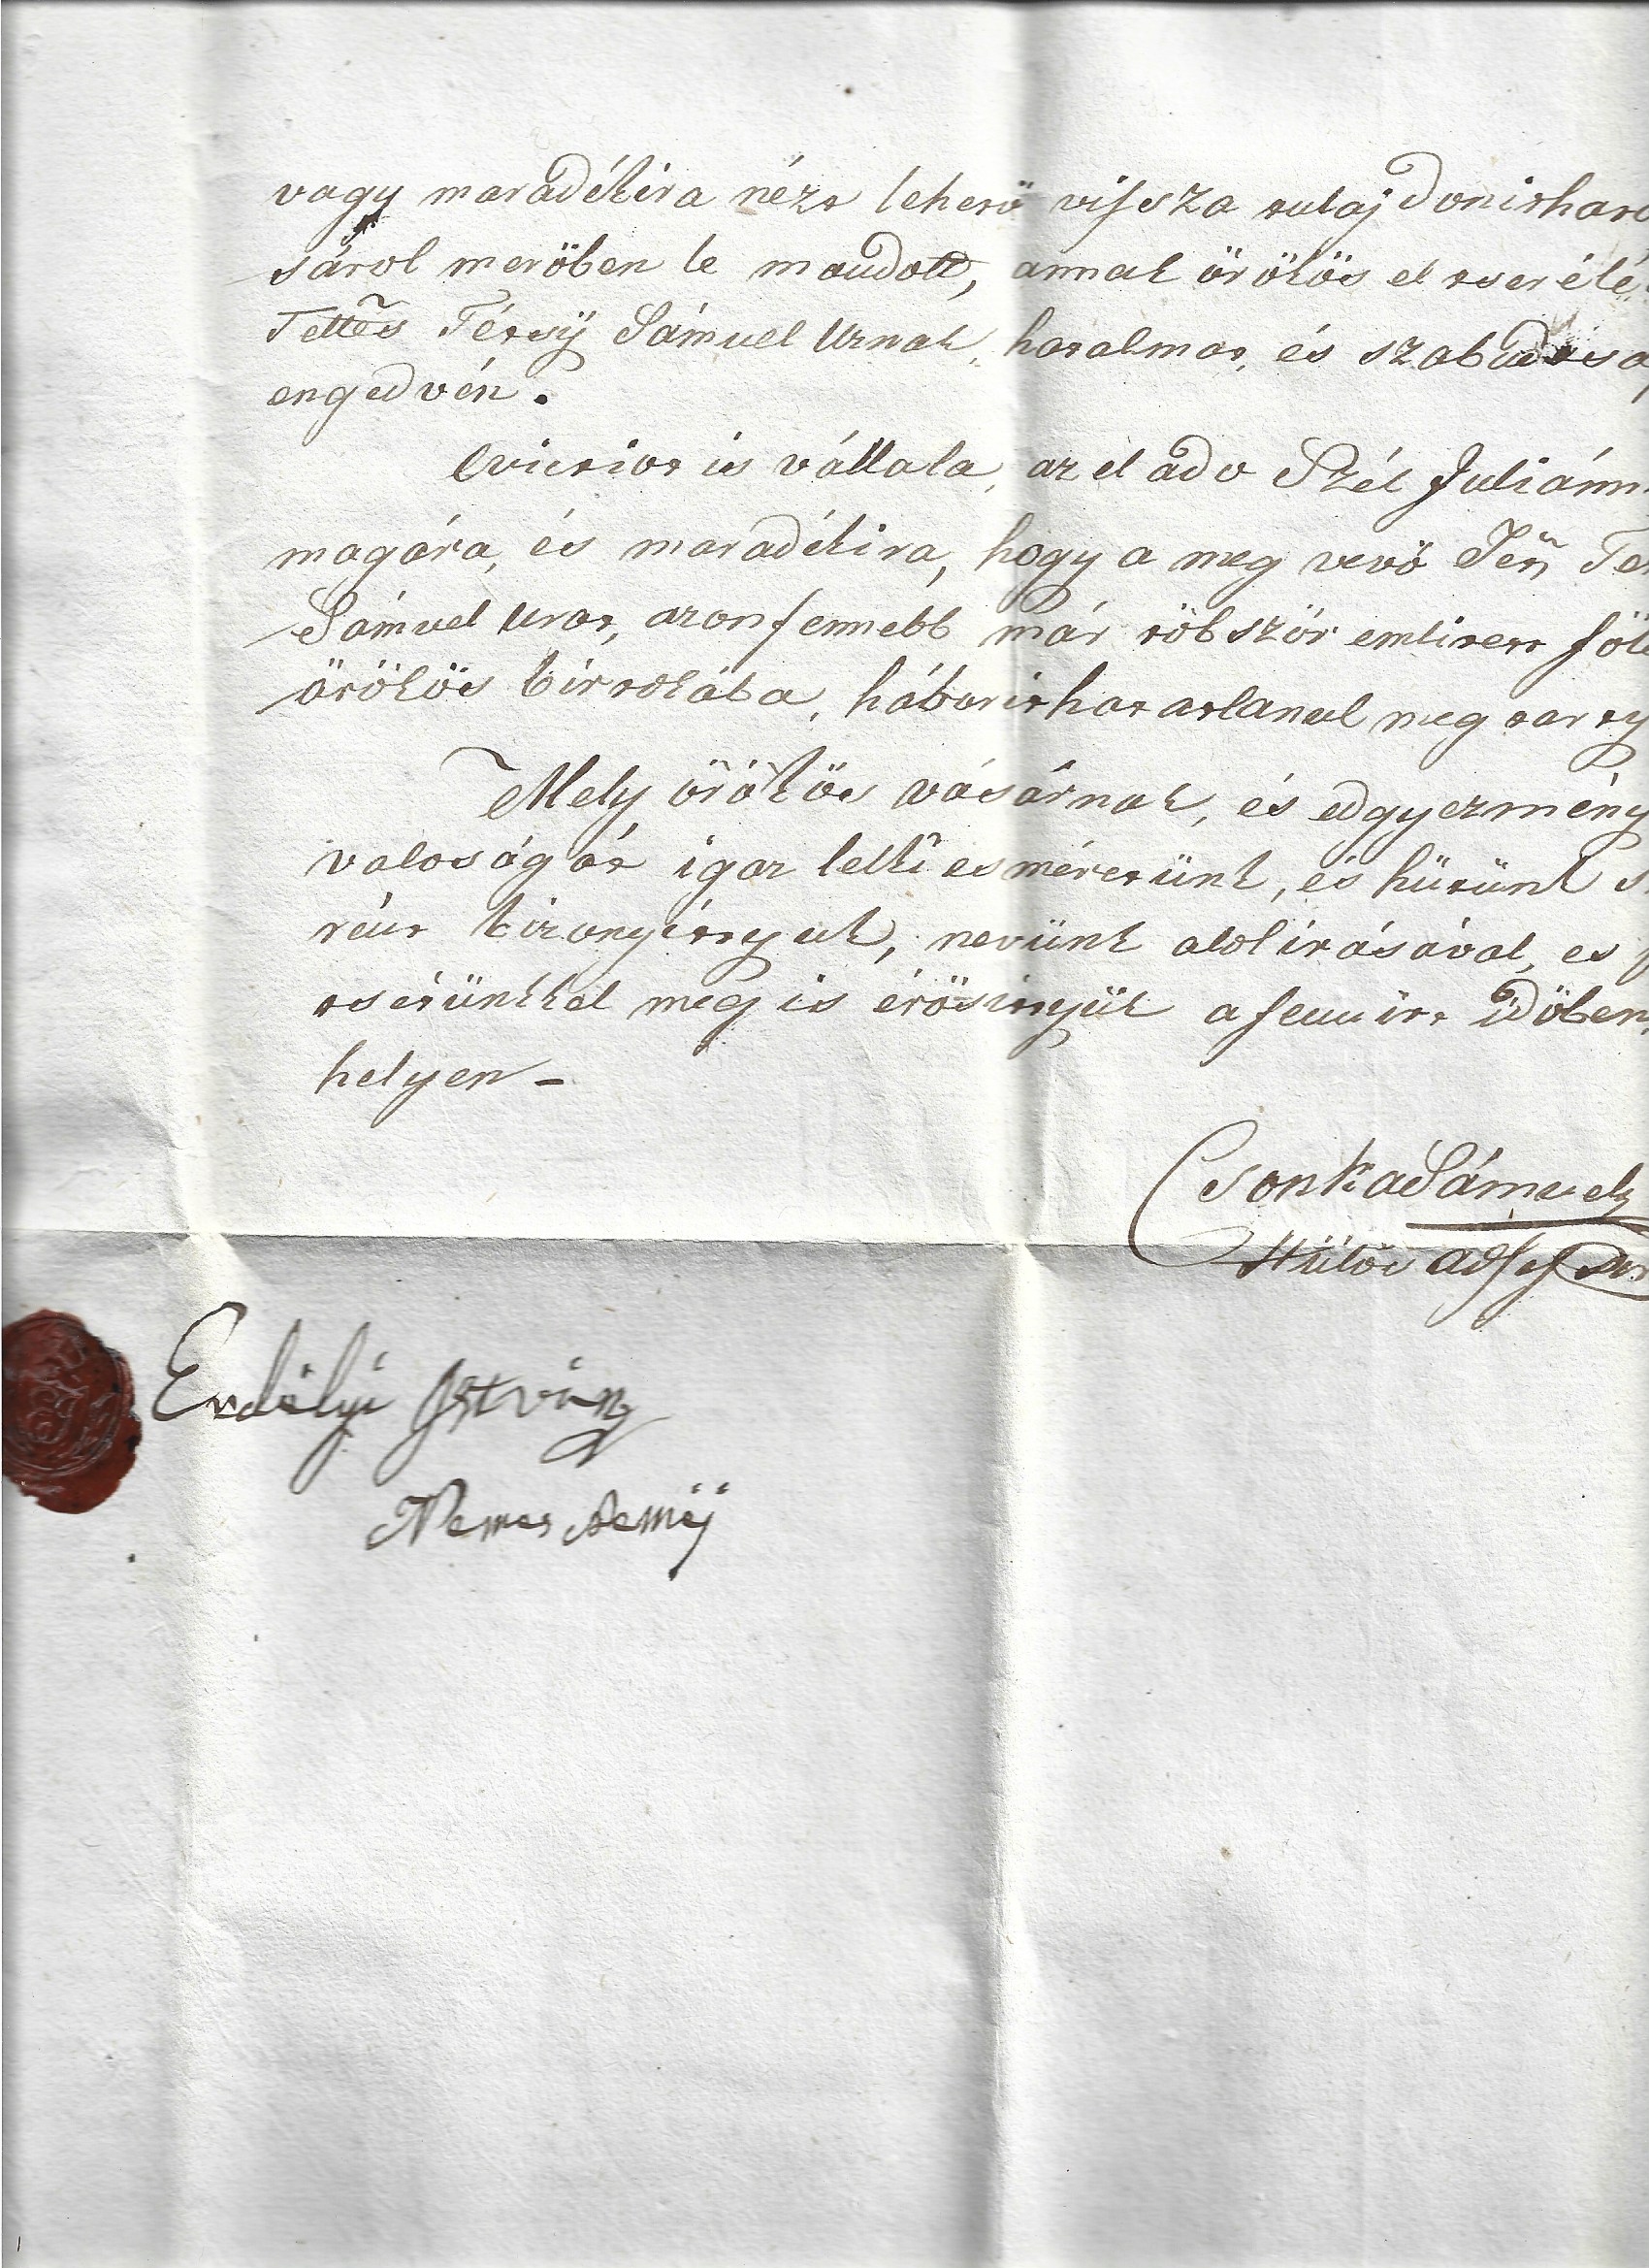 vagy maradékira nézt lehető viſsza tulajdonithato
sárol merőben le mondott, annak örökös el cseréle
Tettes Téttsÿ Sámuel Urnak, hatalmat, és szabadsá
engedvén.
Evictiot is vállala, az el adó Szél Juliánn
magára, és maradékira, hogy a meg vevő Ten Te
Sámuel Urat, azon fennebb már többször emlitett föl
örökös birtokába, háborithatatlanul meg tartty
Mely örökös vásárnak, és edgyezmény
valoságát igaz lelki esméretünk, és hütünk s
rént bizonyittyuk, nevünk alol irásával, es p
tsétünkkel meg is érősittyük a fenn irt időben
helyen -
Csonka Sámuel
Hütös adſeſsor
Erdélyi István
Nemes Személÿ